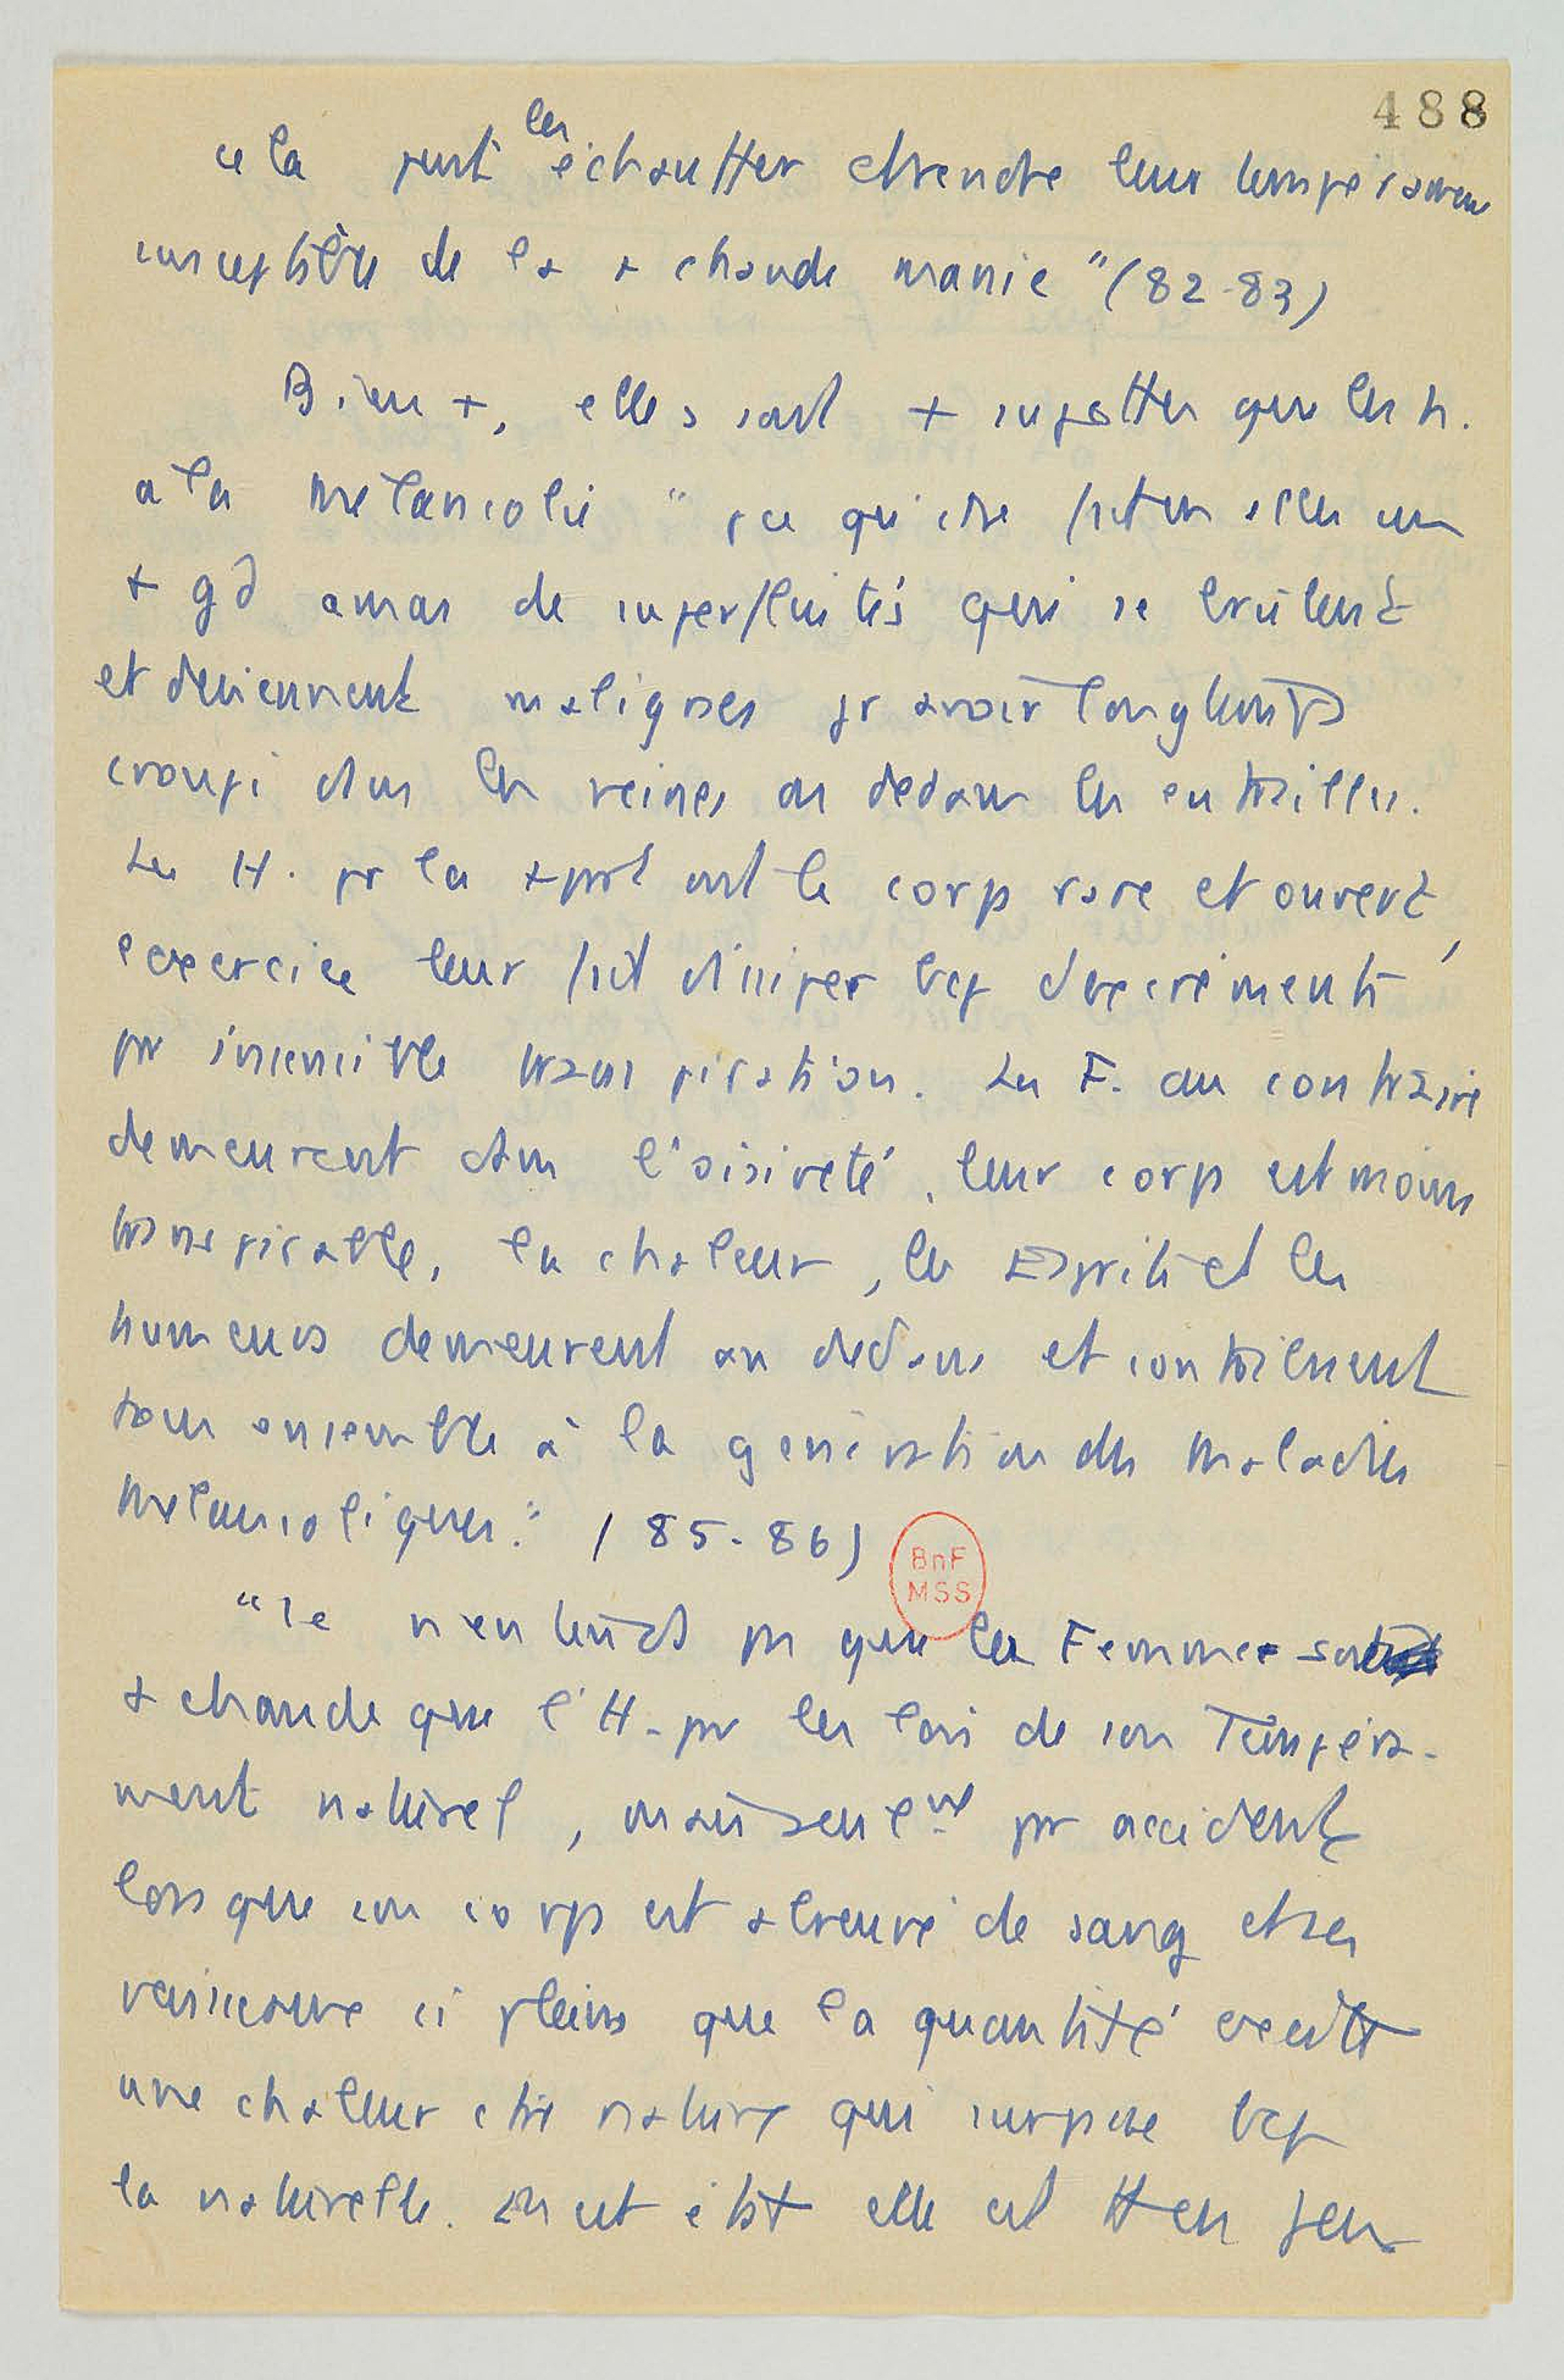 488
cela peut les échauffer et rendre leur tempéramen
susceptible de la + chaude manie" (82-83)
Bien +, elles sont + sujettes que les h.
à la mélancolie " pce qu'il se fait en elles un
+ gd amas de superfluités qui se brûlent
et deviennent malignes pr avoir longtemps
croupi dans les veines ou dedans les entrailles.
Les H. pr la + part ont le corps rare et ouvert,
l'exercice leur fait dissiper bcp d'excréments
par insensible transpiration. Les F. au contraire
demeurent dans l'oisiveté, leur corps est moins
transpirable, la chaleur, les Esprits et les
humeurs demeurent au dedans et contribuent
tous ensemble à la génération des maladies
mélancoliques." (85-86)
BnF
MSS
"Je n'entends pas que la Femme soit
+ chaude que l'H. par les lois de son Tempéra-
ment naturel, mais seulemt par accident
lorsque son corps est abreuvé de sang et ses
vaisseaux si pleins que la quantité excite
une chaleur ctre nature qui surpasse bcp
la naturelle. En cet état elle est tte en feu